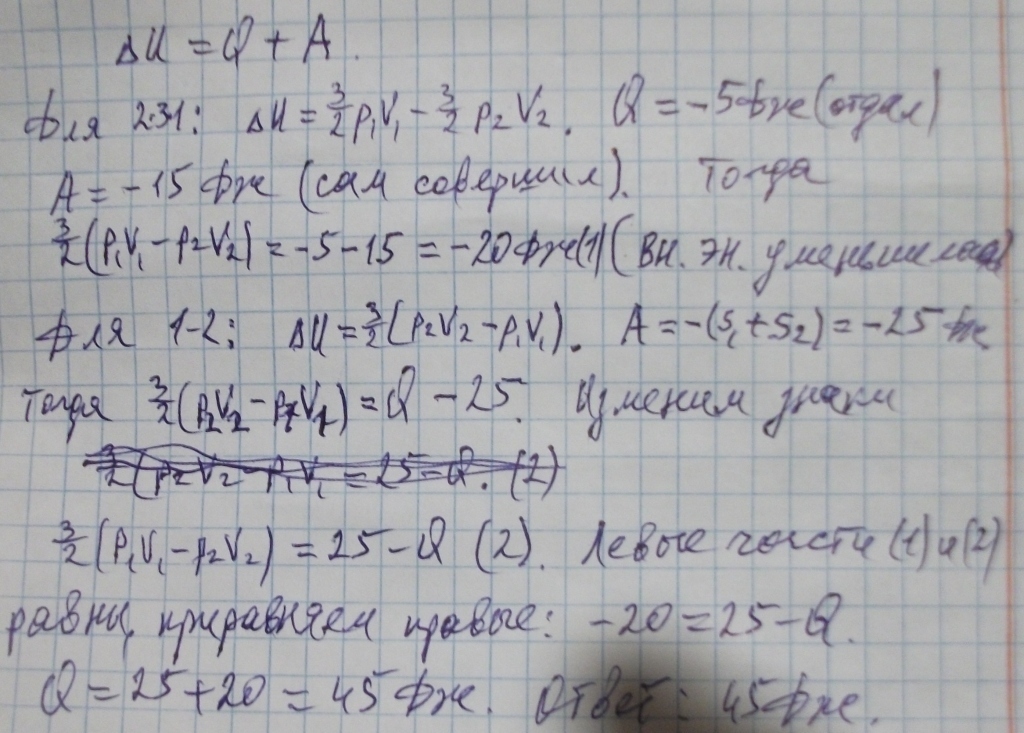 ΔU = Q + A.
Для 2-31: ΔU = 3/2 p₁V₁ - 3/2 p₂V₂. Q = -5 Дж (отдал)
A = -15 Дж (сам совершил). Тогда
3/2 (p₁V₁ - p₂V₂) = -5 - 15 = -20 Дж (1) (вн. эн. уменьшилась)
Для 1-2: ΔU = 3/2 (p₂V₂ - p₁V₁). A = -(S₁ + S₂) = -25 Дж
Тогда 3/2 (p₂V₂ - p₁V₁) = Q - 25. Изменим знаки
3/2 (p₂V₂ - p₁V₁ = 25 - Q. (2)
3/2 (p₁V₁ - p₂V₂) = 25 - Q (2). Левые части (1) и (2)
равны, приравняем правые: -20 = 25 - Q.
Q = 25 + 20 = 45 Дж. Ответ: 45 Дж.